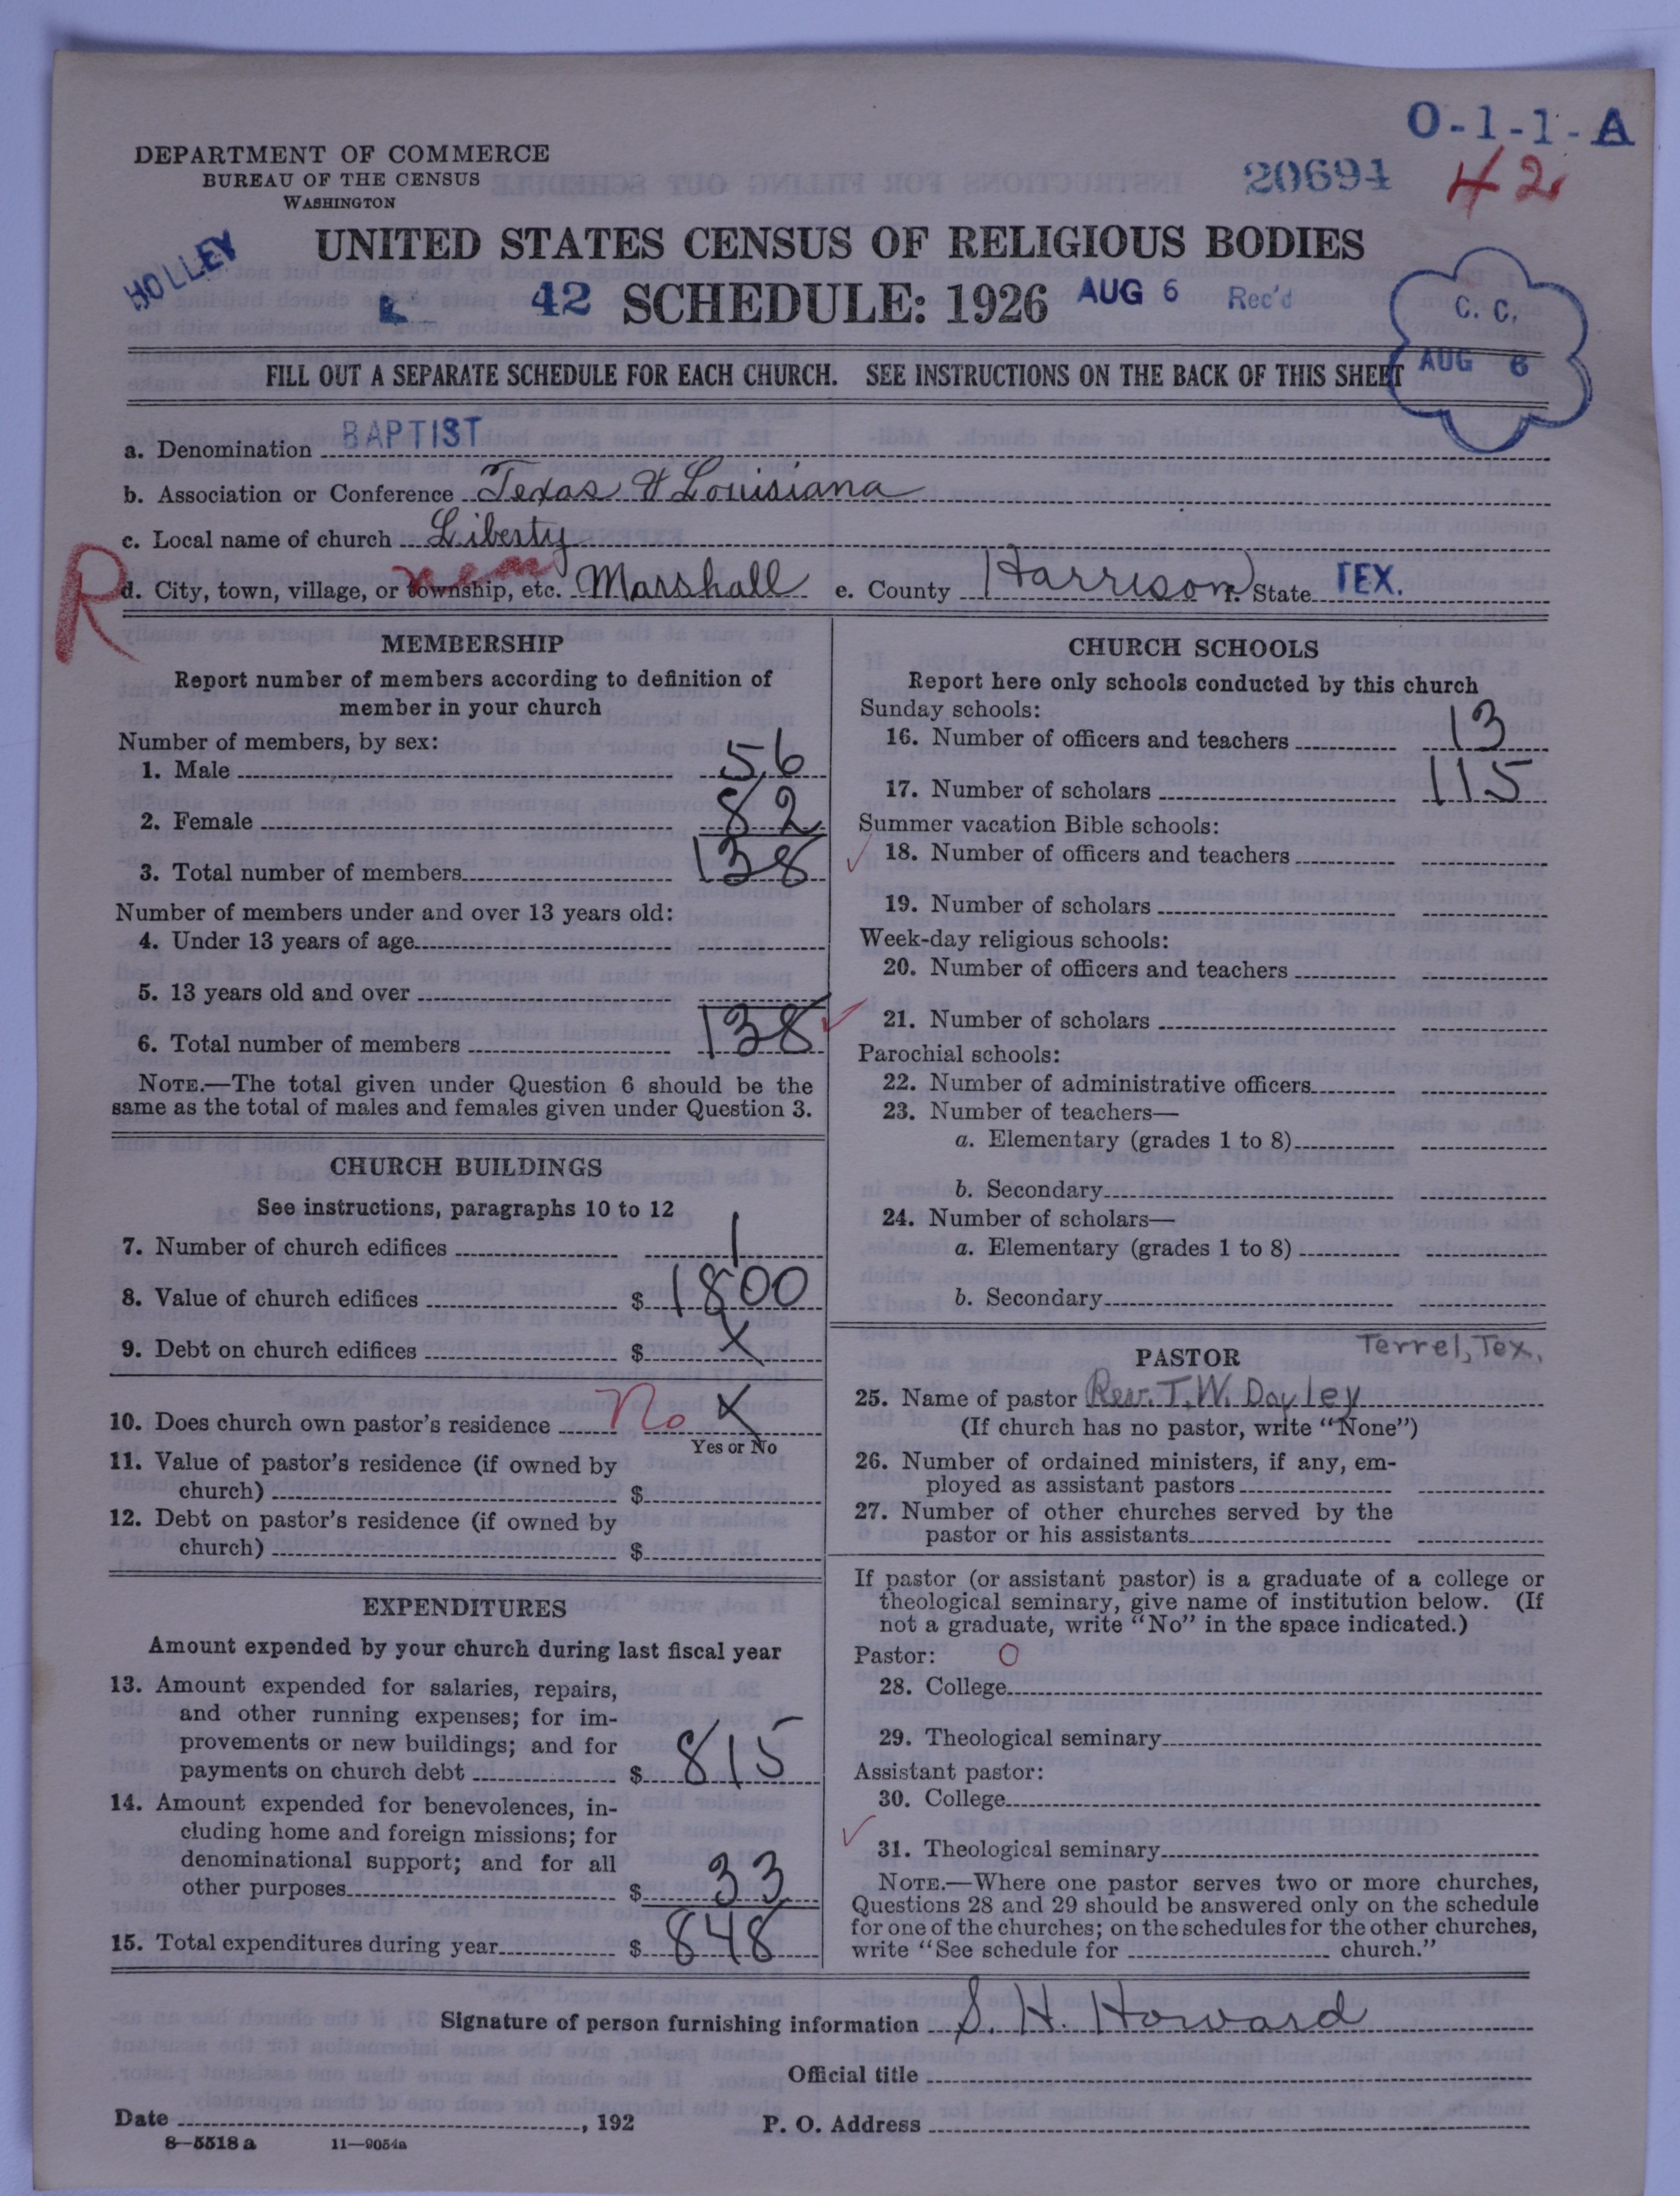 O-1-1-A
DEPARTMENT OF COMMERCE
BUREAU OF THE CENSUS
WASHINGTON
20694 42
HOLLEY
UNITED STATES CENSUS OF RELIGIOUS BODIES
42 SCHEDULE: 1926 AUG 6 Rec'd
C. C.
AUG 6
FILL OUT A SEPARATE SCHEDULE FOR EACH CHURCH. SEE INSTRUCTIONS ON THE BACK OF THIS SHEET
a. Denomination BAPTIST
b. Association or Conference Texas & Louisiana
c. Local name of church Liberty
R
d. City, town, village, or township, etc. near Marshall e. County Harrison f. State TEX.
MEMBERSHIP
Report number of members according to definition of
member in your church
Number of members, by sex:
1. Male 56
2. Female 82
3. Total number of members 138
Number of members under and over 13 years old:
4. Under 13 years of age
5. 13 years old and over
6. Total number of members 138
NOTE.—The total given under Question 6 should be the
same as the total of males and females given under Question 3.
CHURCH BUILDINGS
See instructions, paragraphs 10 to 12
7. Number of church edifices 1
8. Value of church edifices $ 1800
9. Debt on church edifices $ X
10. Does church own pastor's residence No X
Yes or No
11. Value of pastor's residence (if owned by
church) $
12. Debt on pastor's residence (if owned by
church) $
EXPENDITURES
Amount expended by your church during last fiscal year
13. Amount expended for salaries, repairs,
and other running expenses; for im-
provements or new buildings; and for
payments on church debt $ 815
14. Amount expended for benevolences, in-
cluding home and foreign missions; for
denominational support; and for all
other purposes $ 33
15. Total expenditures during year $ 848
CHURCH SCHOOLS
Report here only schools conducted by this church
Sunday schools:
16. Number of officers and teachers 13
17. Number of scholars 115
Summer vacation Bible schools:
18. Number of officers and teachers
19. Number of scholars
Week-day religious schools:
20. Number of officers and teachers
21. Number of scholars
Parochial schools:
22. Number of administrative officers
23. Number of teachers—
a. Elementary (grades 1 to 8)
b. Secondary
24. Number of scholars—
a. Elementary (grades 1 to 8)
b. Secondary
PASTOR Terrel, Tex.
25. Name of pastor Rev. T. W. Dayley
(If church has no pastor, write "None")
26. Number of ordained ministers, if any, em-
ployed as assistant pastors
27. Number of other churches served by the
pastor or his assistants
If pastor (or assistant pastor) is a graduate of a college or
theological seminary, give name of institution below. (If
not a graduate, write "No" in the space indicated.)
Pastor: O
28. College
29. Theological seminary
Assistant pastor:
30. College
31. Theological seminary
NOTE.—Where one pastor serves two or more churches,
Questions 28 and 29 should be answered only on the schedule
for one of the churches; on the schedules for the other churches,
write "See schedule for church."
Signature of person furnishing information S. H. Howard
Official title
Date , 192 P. O. Address
8—5518 a 11—9054a